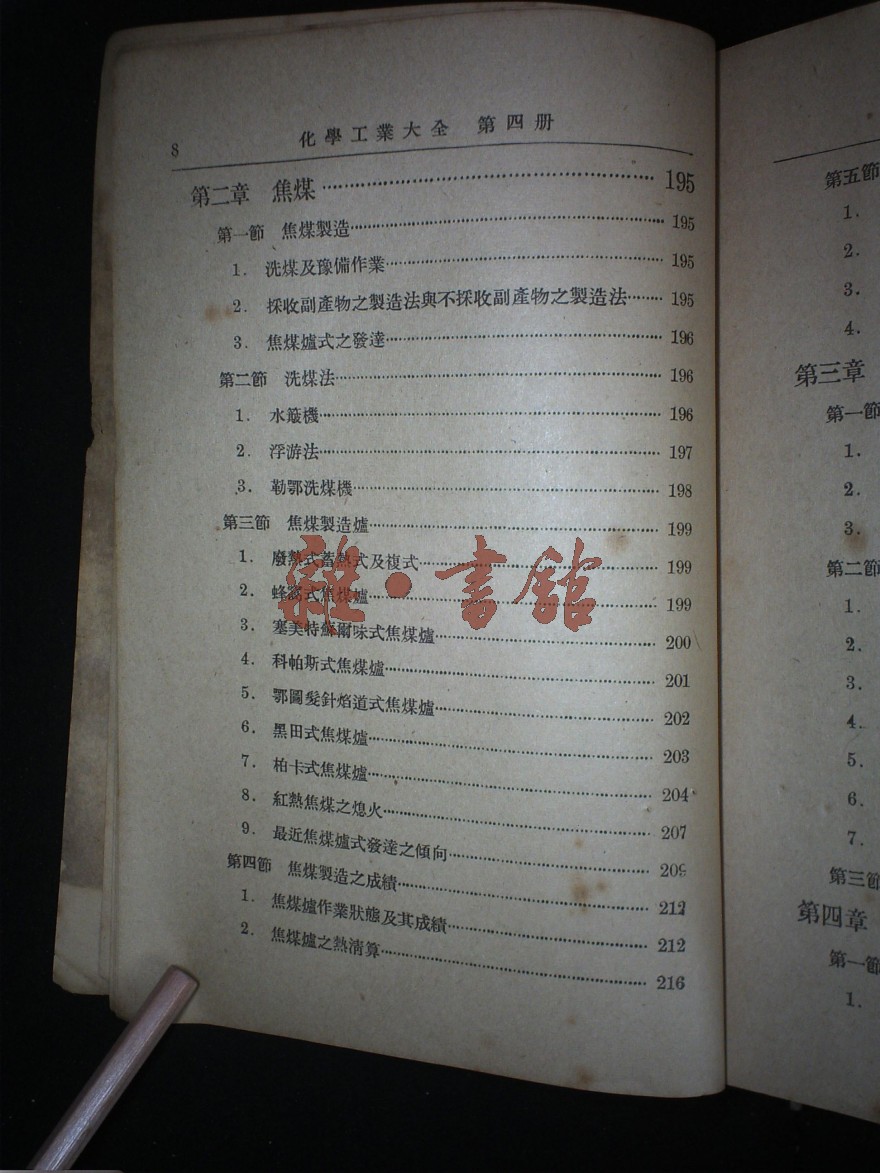 8 化學工業大全 第四册
第二章 焦煤 195
第一節 焦煤製造 195
1. 洗煤及豫備作業 195
2. 採收副產物之製造法與不採收副產物之製造法 195
3. 焦煤爐式之發達 196
第二節 洗煤法 196
1. 水簸機 196
2. 浮游法 197
3. 勒鄂洗煤機 198
第三節 焦煤製造爐 199
1. 廢熱式蓄熱式及複式 199
2. 蜂窩式焦煤爐 199
3. 塞美特蘇爾味式焦煤爐 200
4. 科帕斯式焦煤爐 201
5. 鄂圖髮針焰道式焦煤爐 202
6. 黑田式焦煤爐 203
7. 柏卡式焦煤爐 204
8. 紅熱焦煤之熄火 207
9. 最近焦煤爐式發達之傾向 209
第四節 焦煤製造之成績 212
1. 焦煤爐作業狀態及其成績 212
2. 焦煤爐之熱淸算 216
雜·書館
第五節
1.
2.
3.
4.
第三章
第一節
1.
2.
3.
第二節
1.
2.
3.
4.
5.
6.
7.
第三節
第四章
第一節
1.